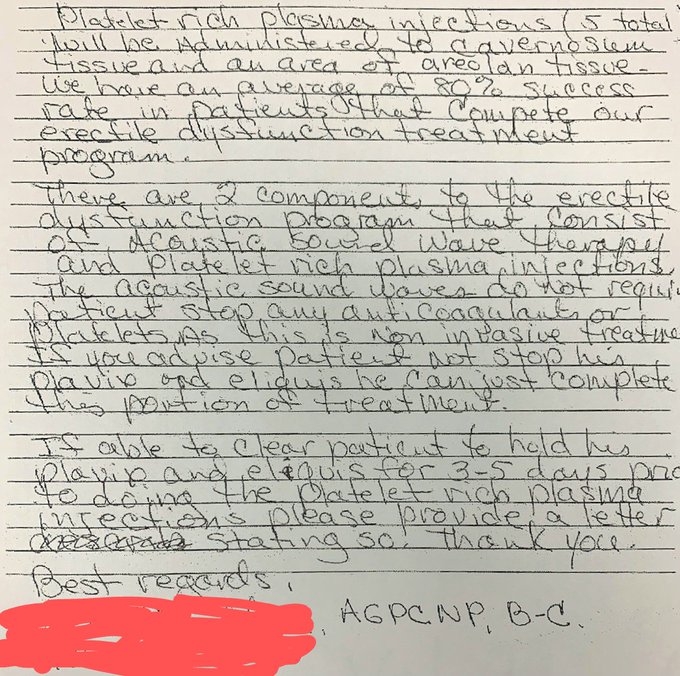 Platelet rich plasma injections (5 total
will be Administered to cavernosum
tissue and an area of areolan tissue-
we have an average of 80% success
rate in patients that Compete our
erectile dysfunction treatment
program.
There are 2 component to the erectile
dysfunction program that consist
of Acoustic Sound Wave therapy
and Platelet rich plasma injections
The acoustic sound waves do not requi
patient stop any anticoagulants or
Platelets. As this is non invasive treatme
If you advise patient not stop his
plavix and eliquis he can just complete
this portion of treatment.
If able to Clear patient to hold his
plavix and eliquis for 3-5 days prio
to doing the Platelet rich plasma
injections please provide a letter
stating so. Thank you.
Best regards,
AGPCNP, B-C.